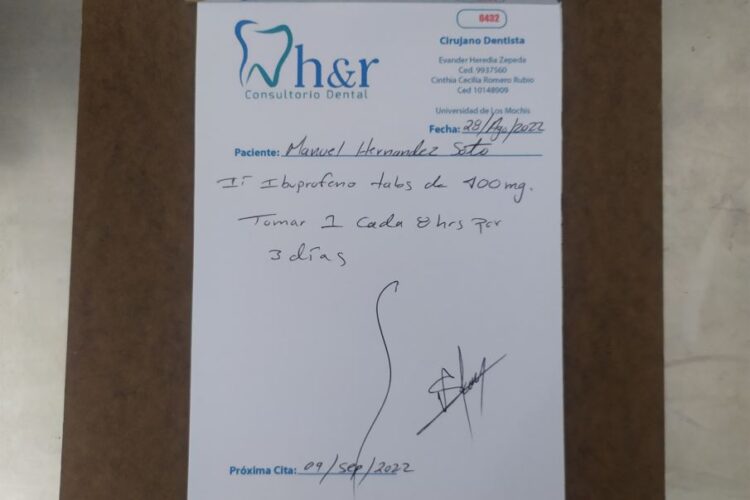 0432
h&r
Consultorio Dental
Cirujano Dentista
Evander Heredia Zepeda
Ced. 9937560
Cinthia Cecilia Romero Rubio
Ced 10148909
Universidad de Los Mochis
Fecha: 28/Ago/2022
Paciente: Manuel Hernandez Soto
Ibuprofeno tabs de 400mg.
Tomar 1 cada 8hrs por
3 días
Próxima Cita: 09/sep/2022